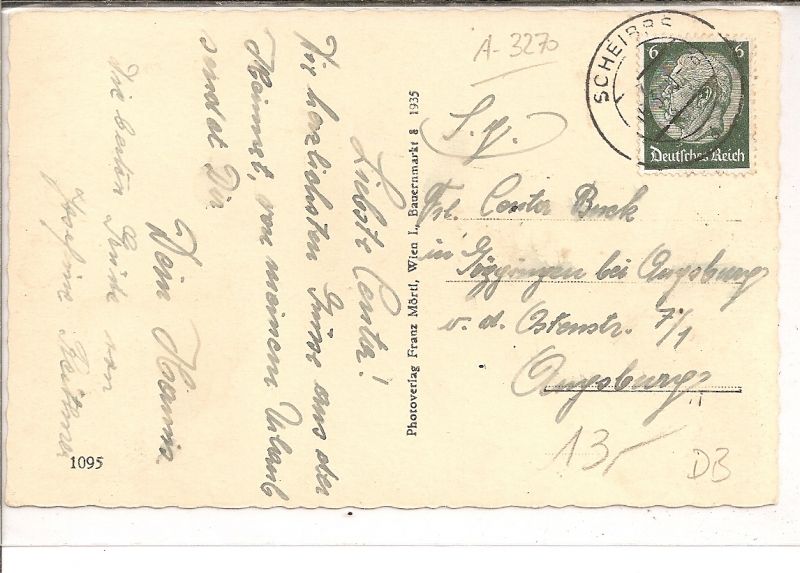 Liebste Centa!
Die herzlichsten Grüsse aus der
Heimat, von meinem Urlaub
sendet Dir
Dein Hannis.
Die besten Grüße von
Josefine
1095
Photoverlag Franz Mörtl, Wien I., Bauernmarkt 8 1935
A-3270
SCHEIBBS
6 6
Deutsches Reich
Frl. Centa Buck
in Göggingen bei Augsburg
v. d. Ostenstr. 7/1
Augsburg
13,-
DB